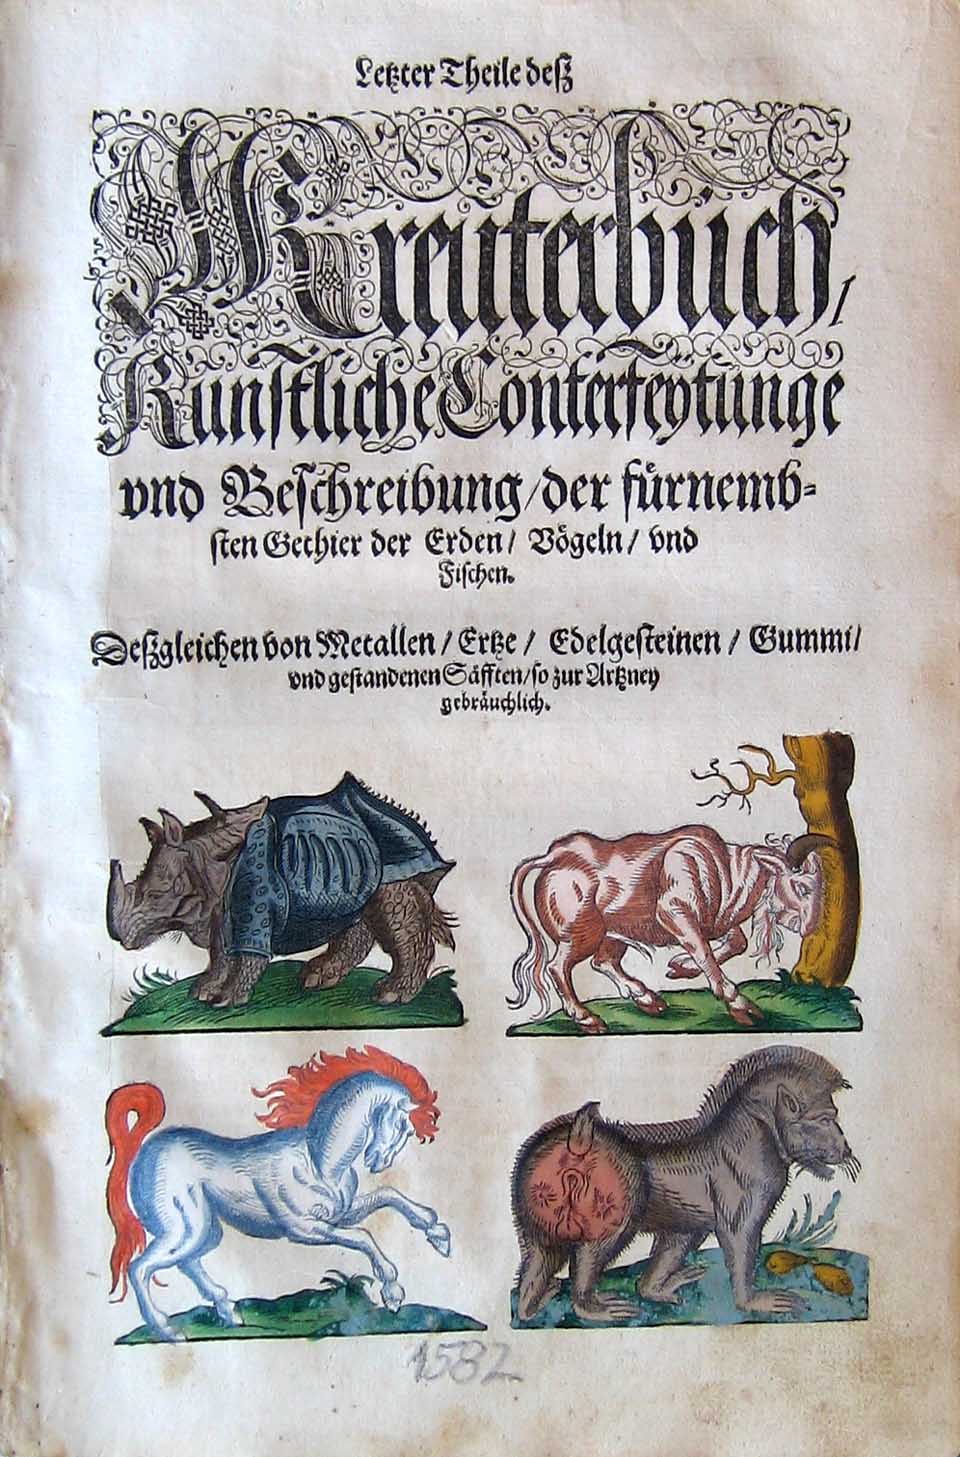 Letzter Theile deß
Kreuterbuch/
Kunstliche Conterfeytunge
vnd Beschreibung/der fürnemb-
sten Gethier der Erden/ Vögeln/ vnd
Fischen.
Deßgleichen von Metallen/ Ertze/ Edelgesteinen/ Gummi/
vnd gestandenen Säfften/so zur Artzney
gebräuchlich.
1582